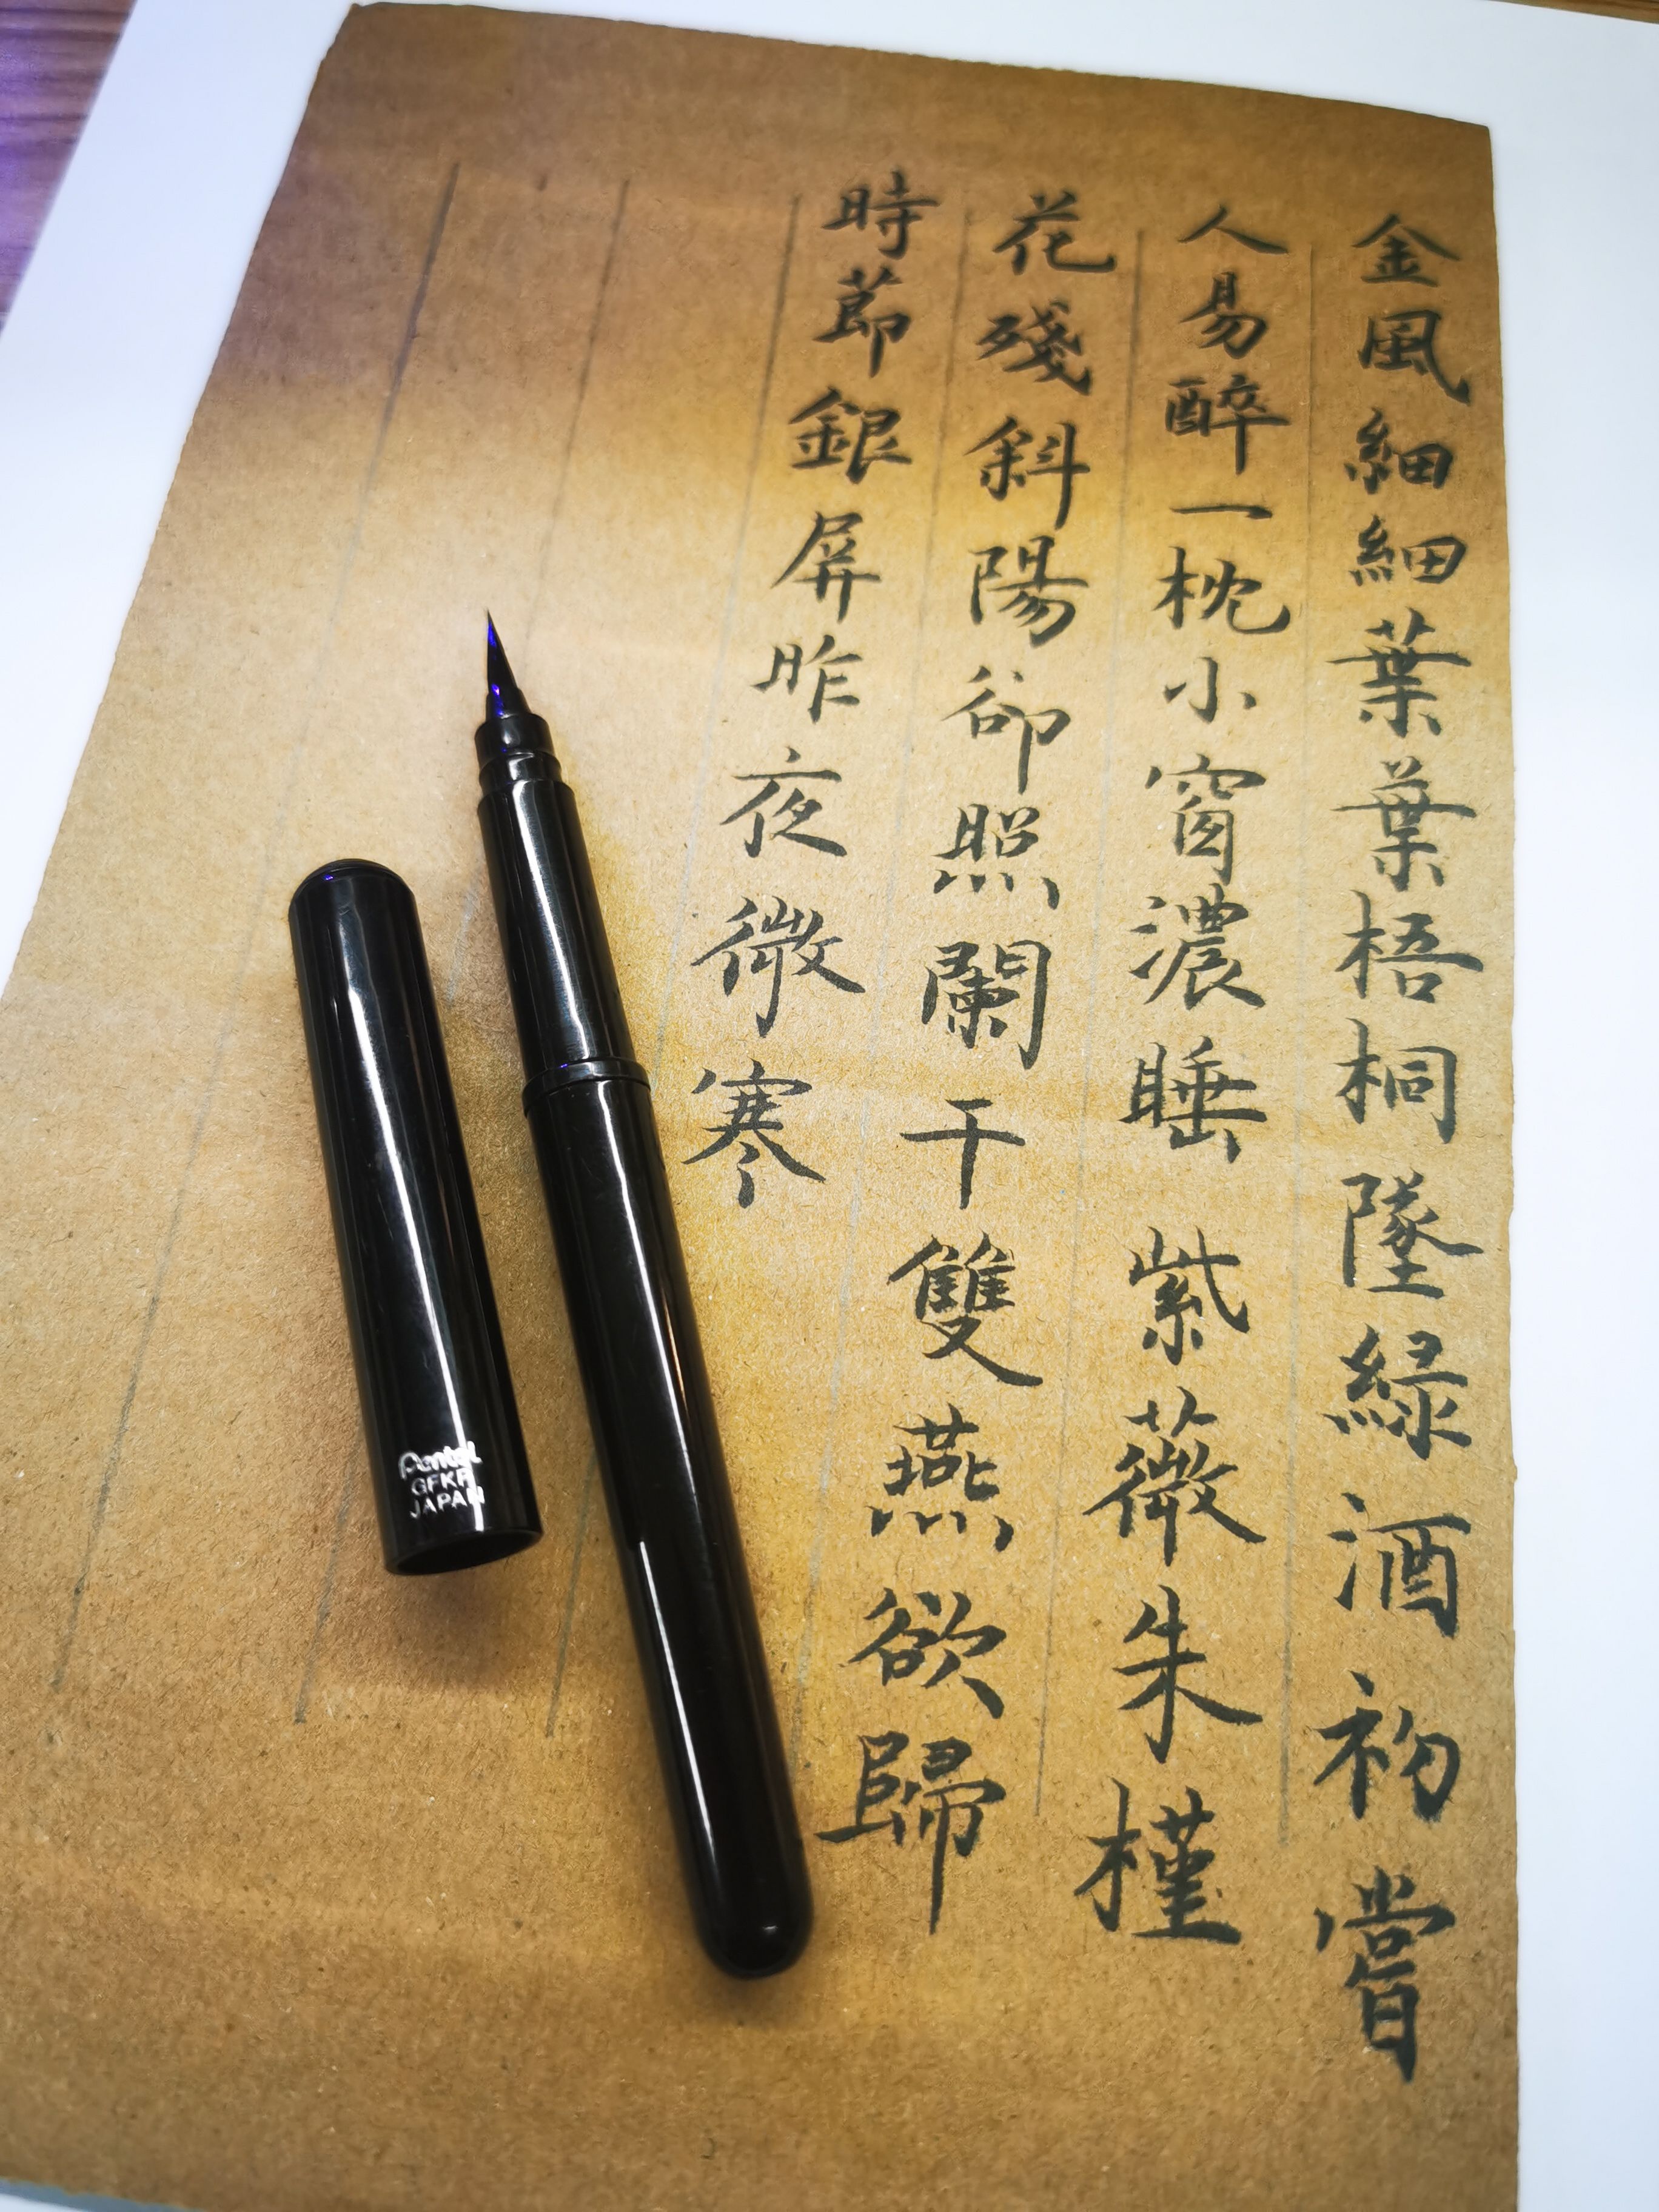 金風細細葉葉梧桐墜綠酒初嘗
人易醉一枕小窗濃睡紫薇朱槿
花殘斜陽卻照闌干雙燕欲歸
時節銀屏昨夜微寒
Pentel
GFKP
JAPAN